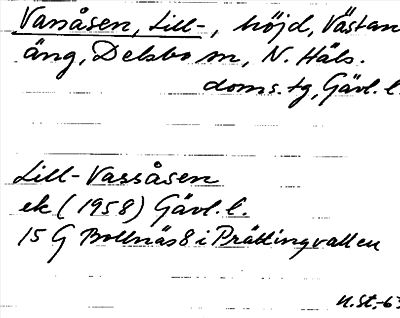 Vanåsen, Lill-, höjd, Västan
äng, Delsbo sn, N. Häls.
doms. tg, Gävl. l.
Lill-Vassåsen
ek (1958) Gävl. l.
15 G Bollnäs 8 i Prästingvallen
N.St.-63